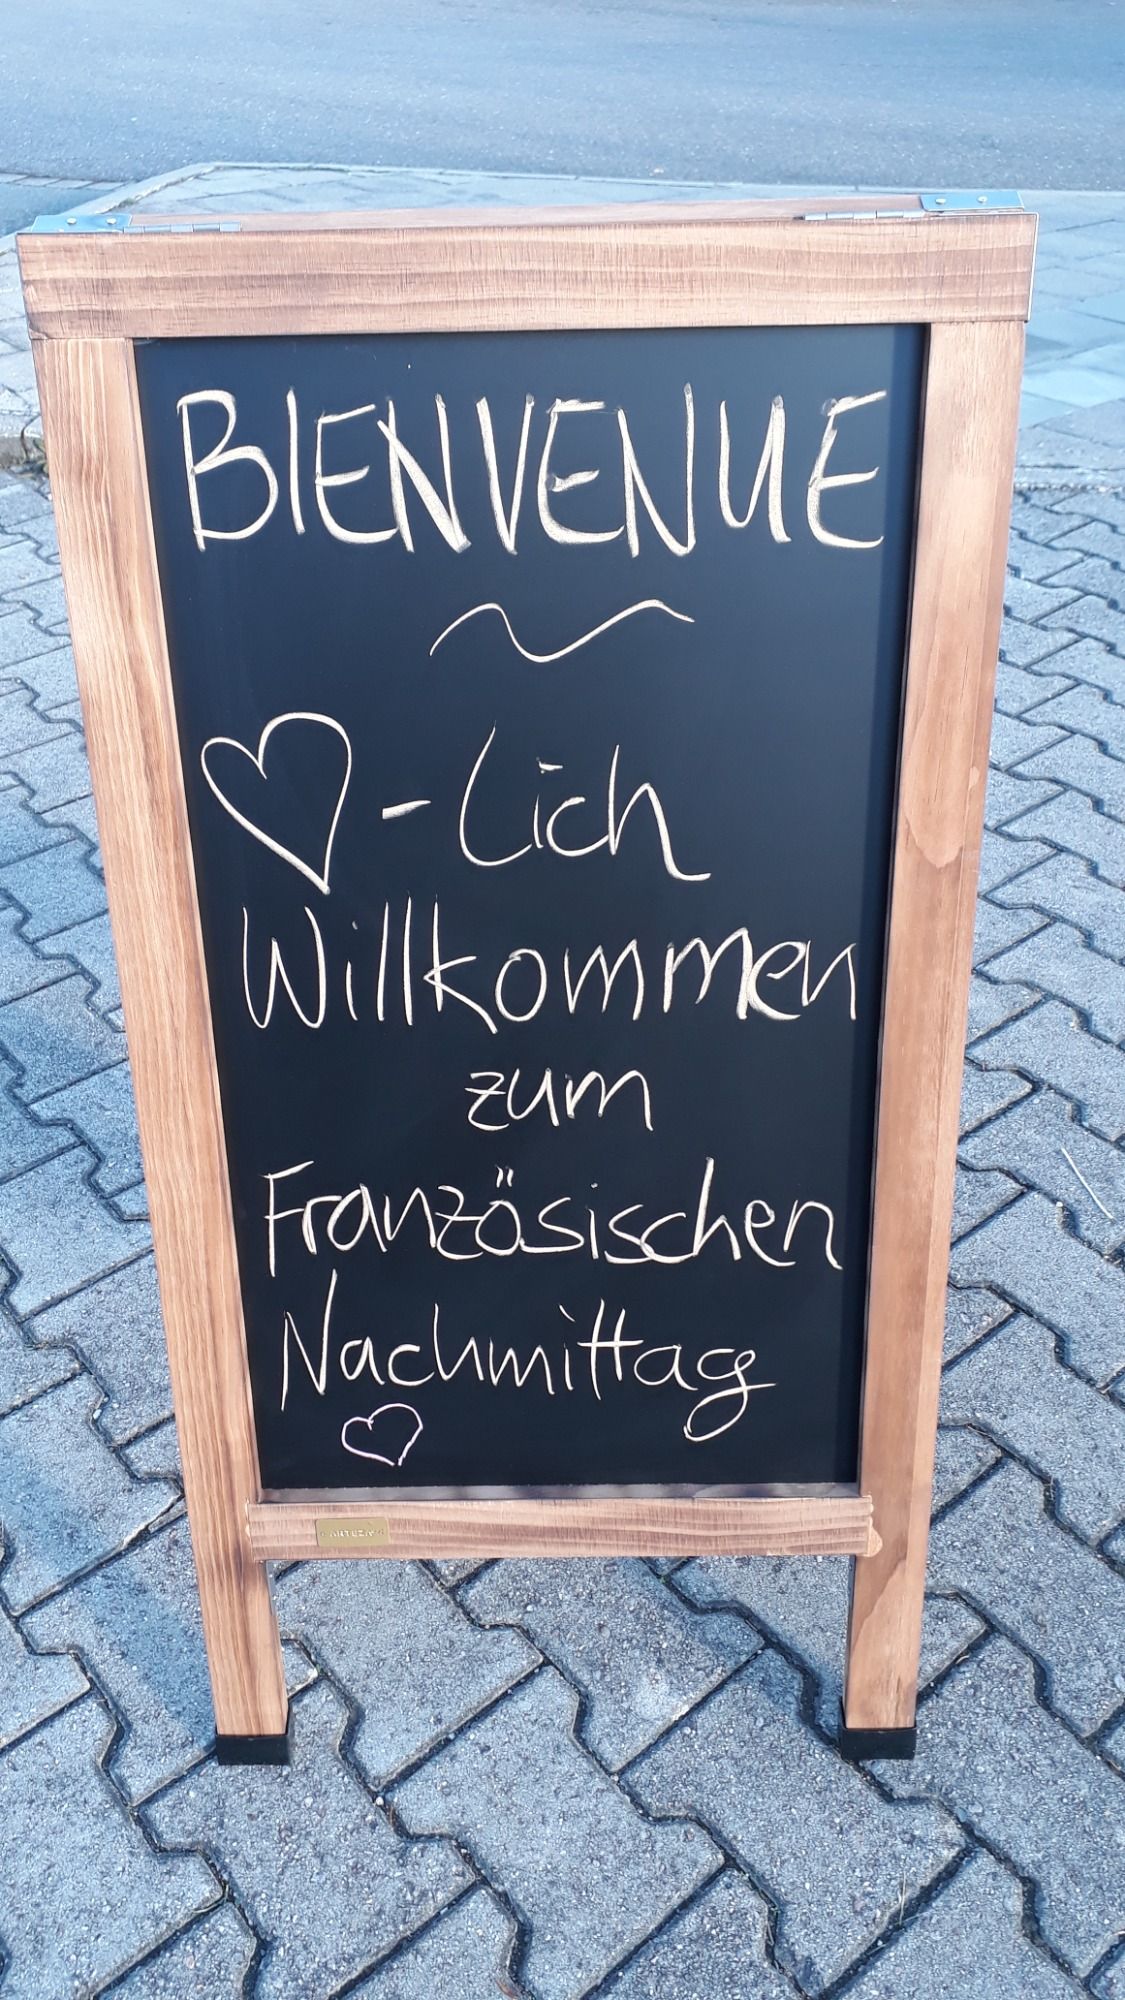 BIENVENUE
♡-lich
Willkommen
zum
Französischen
Nachmittag
ARTEZA